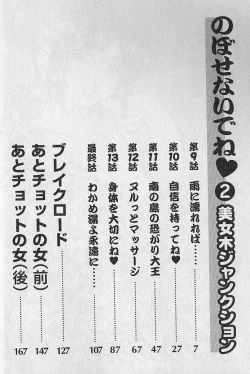 のぼせないでね♥②美女木ジャンクション
第9話 雨に濡れれば…… 7
第10話 自信を持ってね♥ 27
第11話 南の島の恐がり大王 47
第12話 ヌルっとマッサージ 67
第13話 身体を大切にね♥ 87
最終話 わかめ湯よ永遠に…… 107
ブレイクロード 127
あとチョットの女(前) 147
あとチョットの女(後) 167